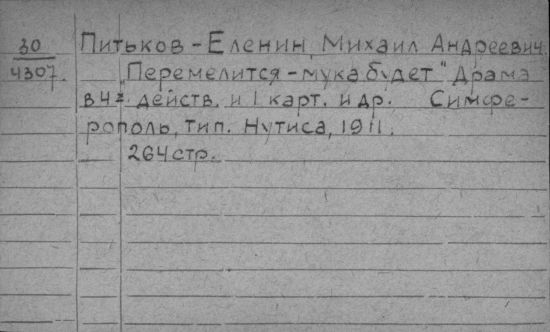 30
4307.
Питьков-Еленин, Михаил Андреевич.
"Перемелится-мука будет" Драма
в 4х действ. и 1 карт. и др. Симфе-
рополь, тип. Нутиса, 1911.
264 стр.